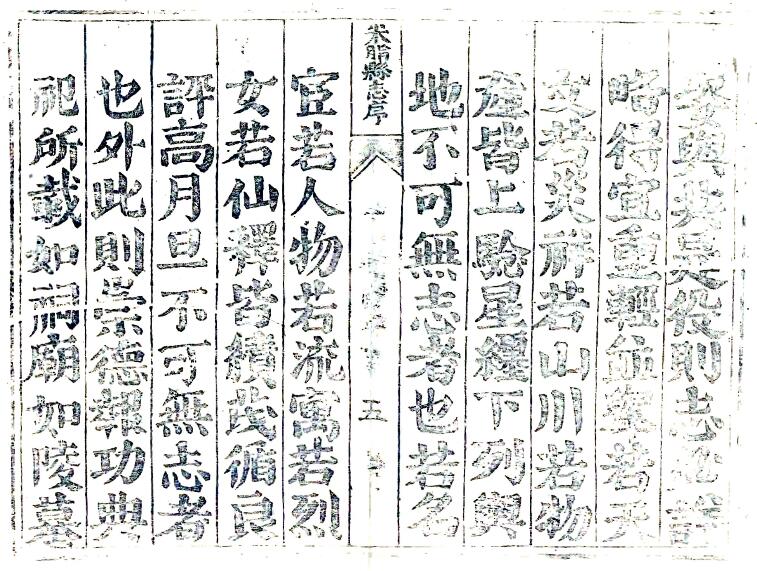 與共是役則志詳
略得宜重輕若天
文若災祥若山川若物
產皆上騐星纏下列輿
地不可無志者也若名
米脂縣志序
五
宦若人物若流寓若烈
女若仙釋皆績茂循良
評高月旦不可無志者
也外此則崇德報功典
祀所載如祠廟如陵墓